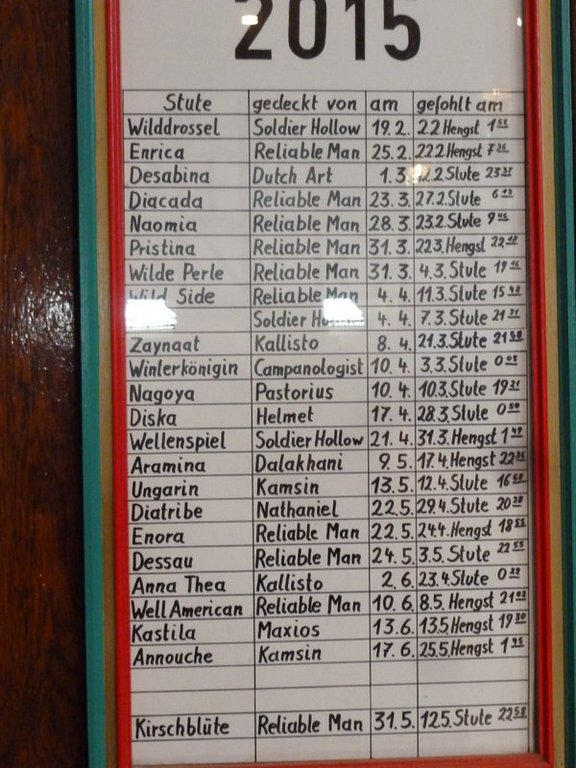 2015
Stute gedeckt von am gefohlt am
Wilddrossel Soldier Hollow 19.2. 2.2 Hengst
Enrica Reliable Man 25.2. 22.2 Hengst
Desabina Dutch Art 1.3. 2.2 Stute 23
Diacada Reliable Man 23.3. 27.2. Stute 6
Naomia Reliable Man 28.3. 23.2. Stute 9
Pristina Reliable Man 31.3. 22.3. Hengst 22
Wilde Perle Reliable Man 31.3. 4.3. Stute 19
Wild Side Reliable Man 4.4. 11.3. Stute 15
Soldier 4.4. 7.3. Stute 21
Zaynaat Kallisto 8.4. 21.3. Stute 21
Winterkönigin Campanologist 10.4. 3.3. Stute 0
Nagoya Pastorius 10.4. 10.3. Stute 19
Diska Helmet 17.4. 28.3. Stute 0
Wellenspiel Soldier Hollow 21.4. 31.3. Hengst 1
Aramina Dalakhani 9.5. 17.4. Hengst 22
Ungarin Kamsin 13.5. 12.4. Stute 16
Diatribe Nathaniel 22.5. 29.4. Stute 20
Enora Reliable Man 22.5. 24.4. Hengst 18
Dessau Reliable Man 24.5. 3.5. Stute 22
Anna Thea Kallisto 2.6. 23.4. Stute 0
Well American Reliable Man 10.6. 8.5. Hengst 21
Kastila Maxios 13.6. 13.5. Hengst 19
Annouche Kamsin 17.6. 25.5. Hengst 1
Kirschblüte Reliable Man 31.5. 12.5. Stute 22